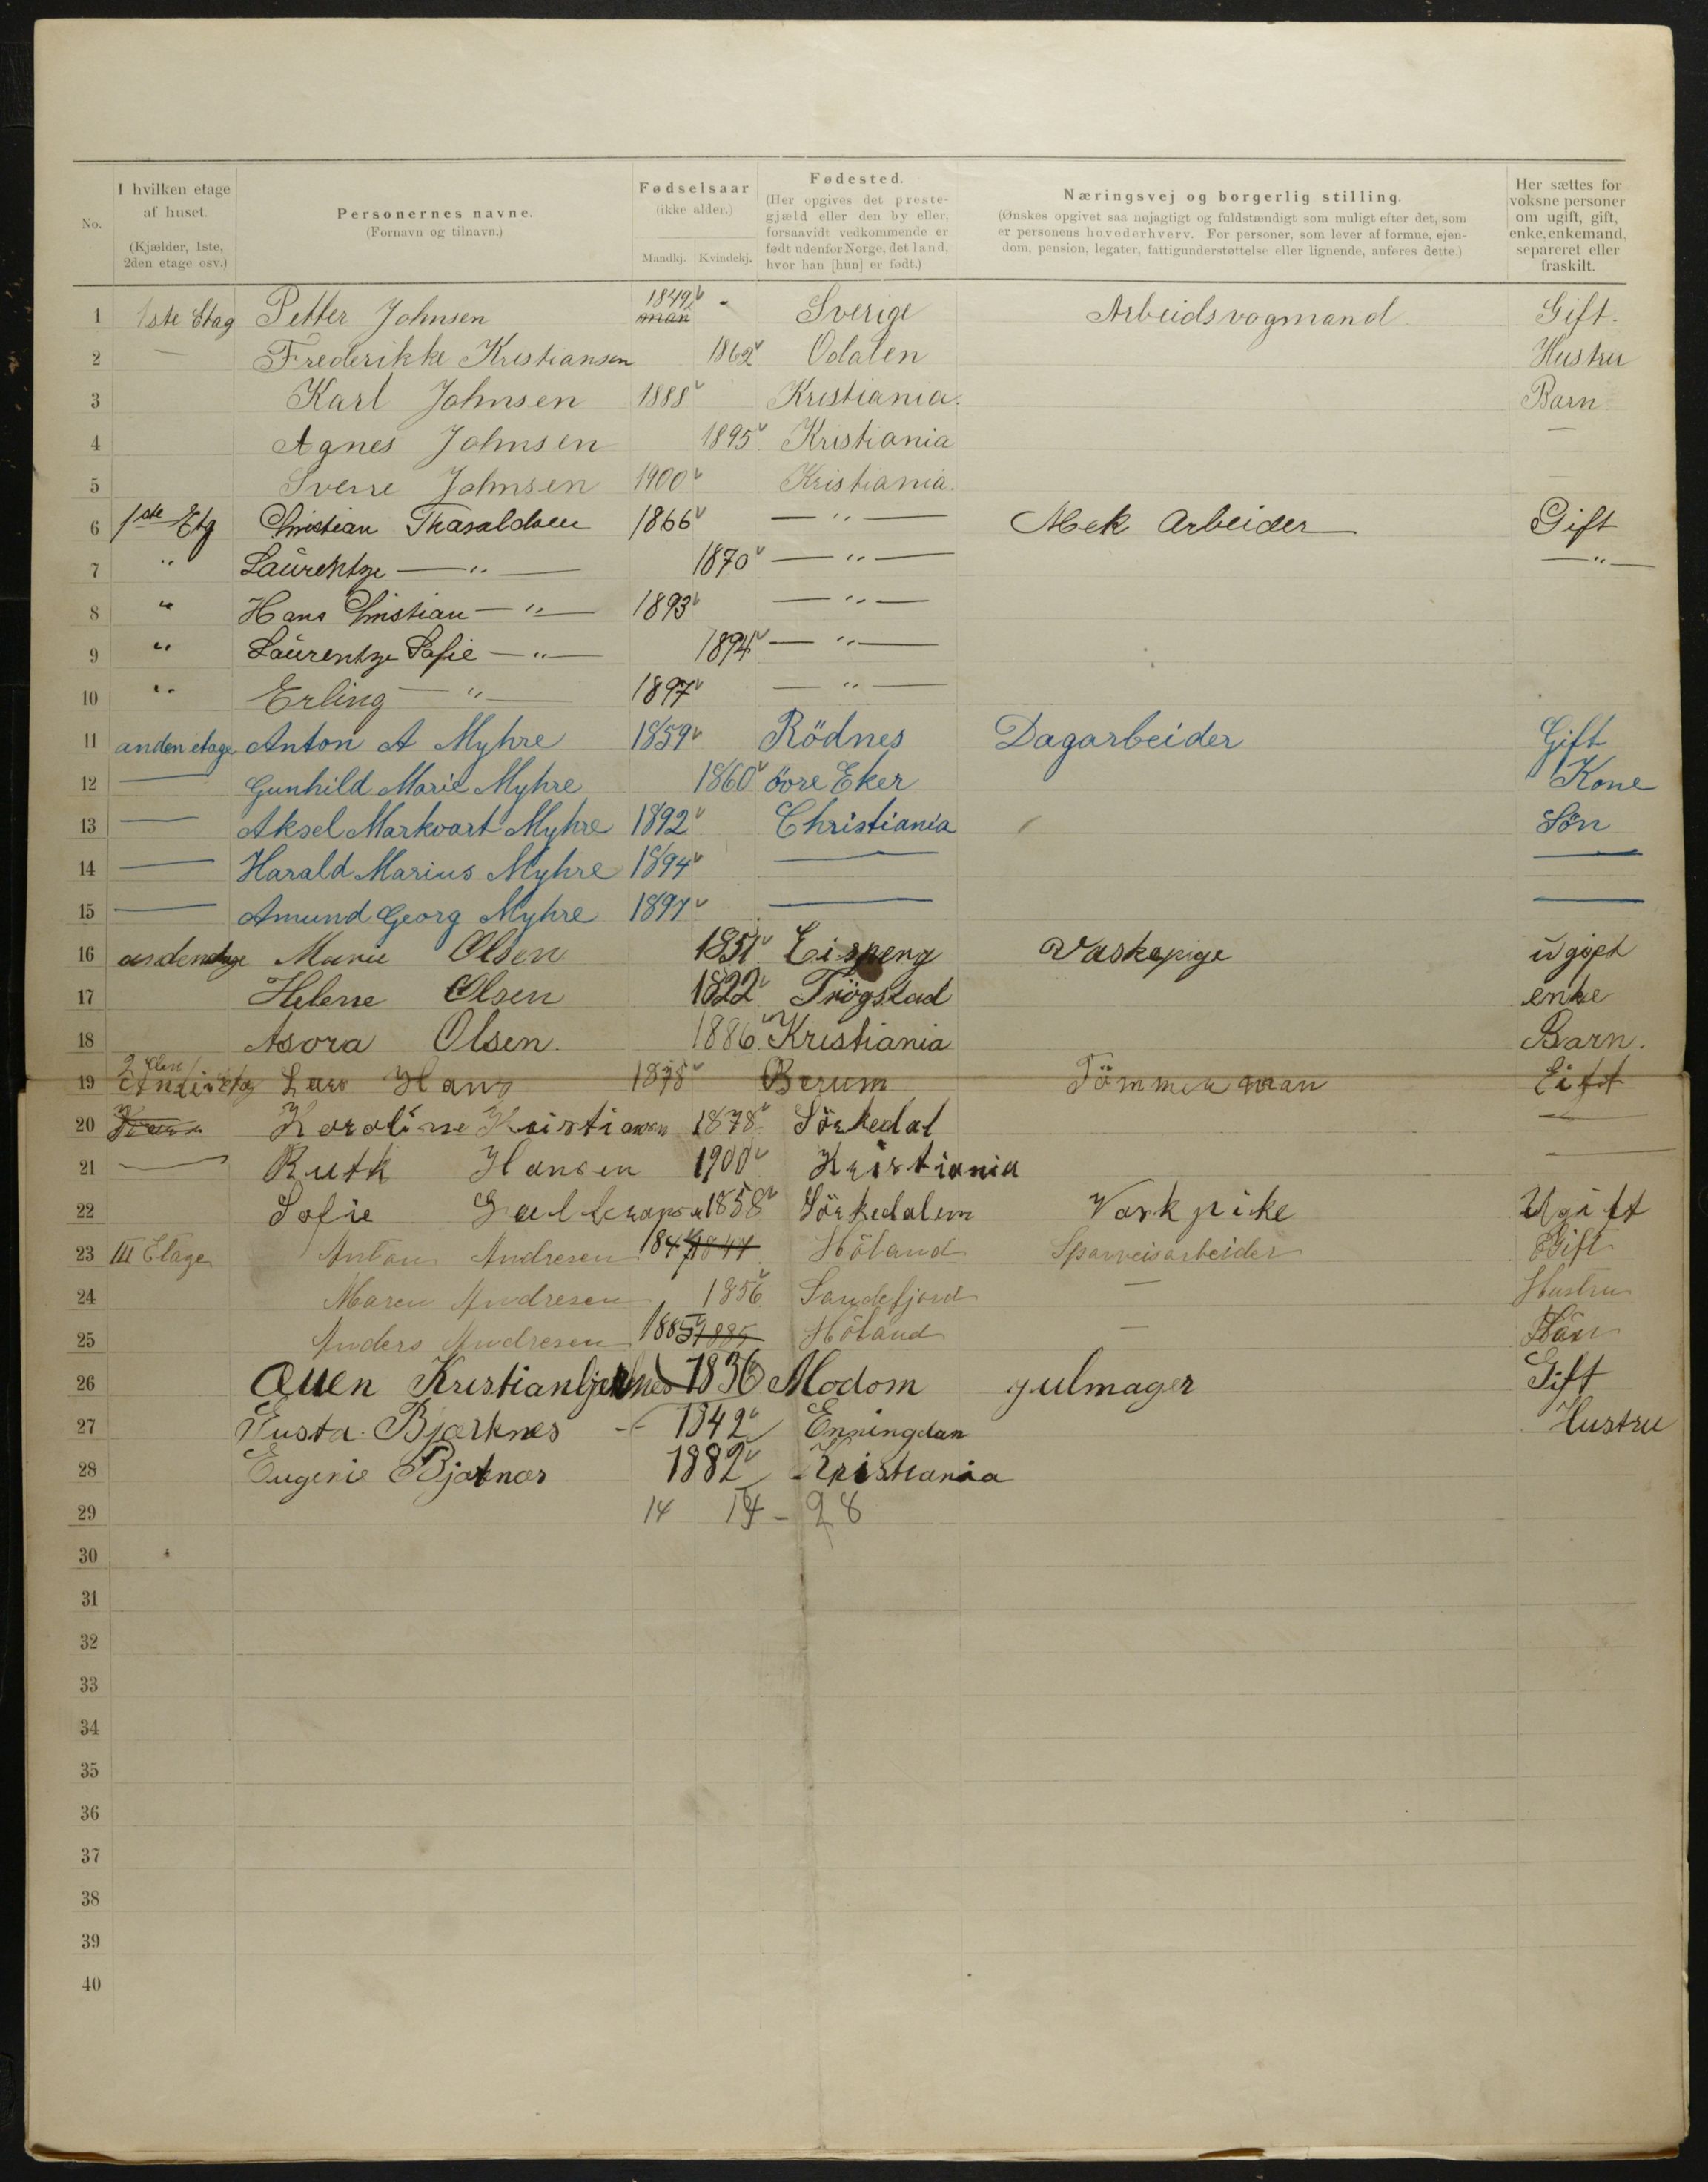 No.
I hvilken etage af huset. (Kjælder, 1ste, 2den etage osv.)
Personernes navne. (Fornavn og tilnavn.)
Fødselsaar (ikke alder.) Mandkj. Kvindekj.
Fødested. (Her opgives det prestegjæld eller den by eller, forsaavidt vedkommende er født udenfor Norge, det land, hvor han [hun] er født.)
Næringsvej og borgerlig stilling. (Ønskes opgivet saa nøjagtigt og fuldstændigt som muligt efter det, som er personens hovederhverv. For personer, som lever af formue, ejendom, pension, legater, fattigunderstøttelse eller lignende, anføres dette.)
Her sættes for voksne personer om ugift, gift, enke, enkemand, separeret eller fraskilt.
1 1ste Etag Petter Johnsen 1849 man - Sverige Arbeidsvogmand Gift.
2 — Frederikke Kristiansen 1862 Odalen Hustru
3 Karl Johnsen 1888 Kristiania. Barn
4 Agnes Johnsen 1895 Kristiania —
5 Sverre Johnsen 1900 Kristiania. —
6 1ste Etg Christian Thasaldsen 1866 — " — Mek Arbeider Gift
7 " Laurentze — " — 1870 — " — — " —
8 " Hans Christian — " — 1893 — " —
9 " Laurentze Sofie — " — 1894 — " —
10 " Erling — " — 1897 — " —
11 anden etage Anton A Myhre 1859 Rödnes Dagarbeider Gift
12 — Gunhild Marie Myhre 1860 övre Eker Kone
13 — Aksel Markvart Myhre 1892 Christiania Sön
14 — Harald Marius Myhre 1894 — —
15 — Amund Georg Myhre 1897 — —
16 andenetage Marie Olsen 1851 Eispeng Vaskepige ugift
17 Helene Olsen 1822 Trögstad enke
18 Asora Olsen. 1886. Kristiania Barn.
19 2 Lars Hans 1878 Berum Tömmerman Gift
20 Karoline Kristiansen 1878 Sörkedal —
21 — Ruth Hansen 1900 Kristiania —
22 Sofie 1858 Sörkedalen Vaskpike Ugift
23 III Etage Anton Andresen 1847 1847 Höland Sporveisarbeider Gift
24 Maren Andresen 1856 Sandefjord — Hustru
25 Anders Andresen 1885 1885 Höland — Sön
26 Ouen Kristianbjerknes 1836 Modom julmager Gift
27 Gusta. Bjerknes - 1842 Enningdan Hustru
28 Eugenie Bjerknes 1882 Kristiania
29 14 14 - 28
30
31
32
33
34
35
36
37
38
39
40